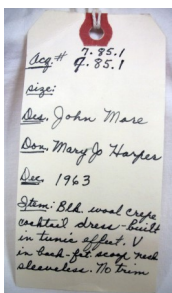 7.85.1
Acq.# 9.85.1
size:
Des. John More
Don. Mary Jo Harper
Dec. 1963
Item: Blk. wool crepe
cocktail dress - built
in tunic effect. V
in back - frt. scoop neck
sleeveless. No trim